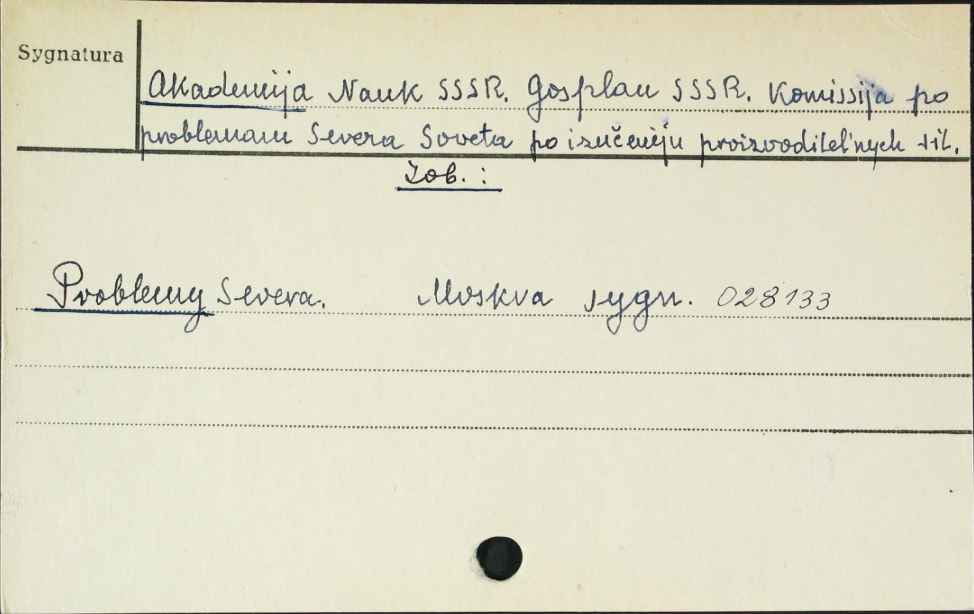 Sygnatura
Akademija Nauk SSSR. Gosplan SSSR. Komissija po
problemam Severa Soveta po izučeniju proizvoditel'nych sil.
Zob. :
Problemy Severa. Moskva sygn. 028133